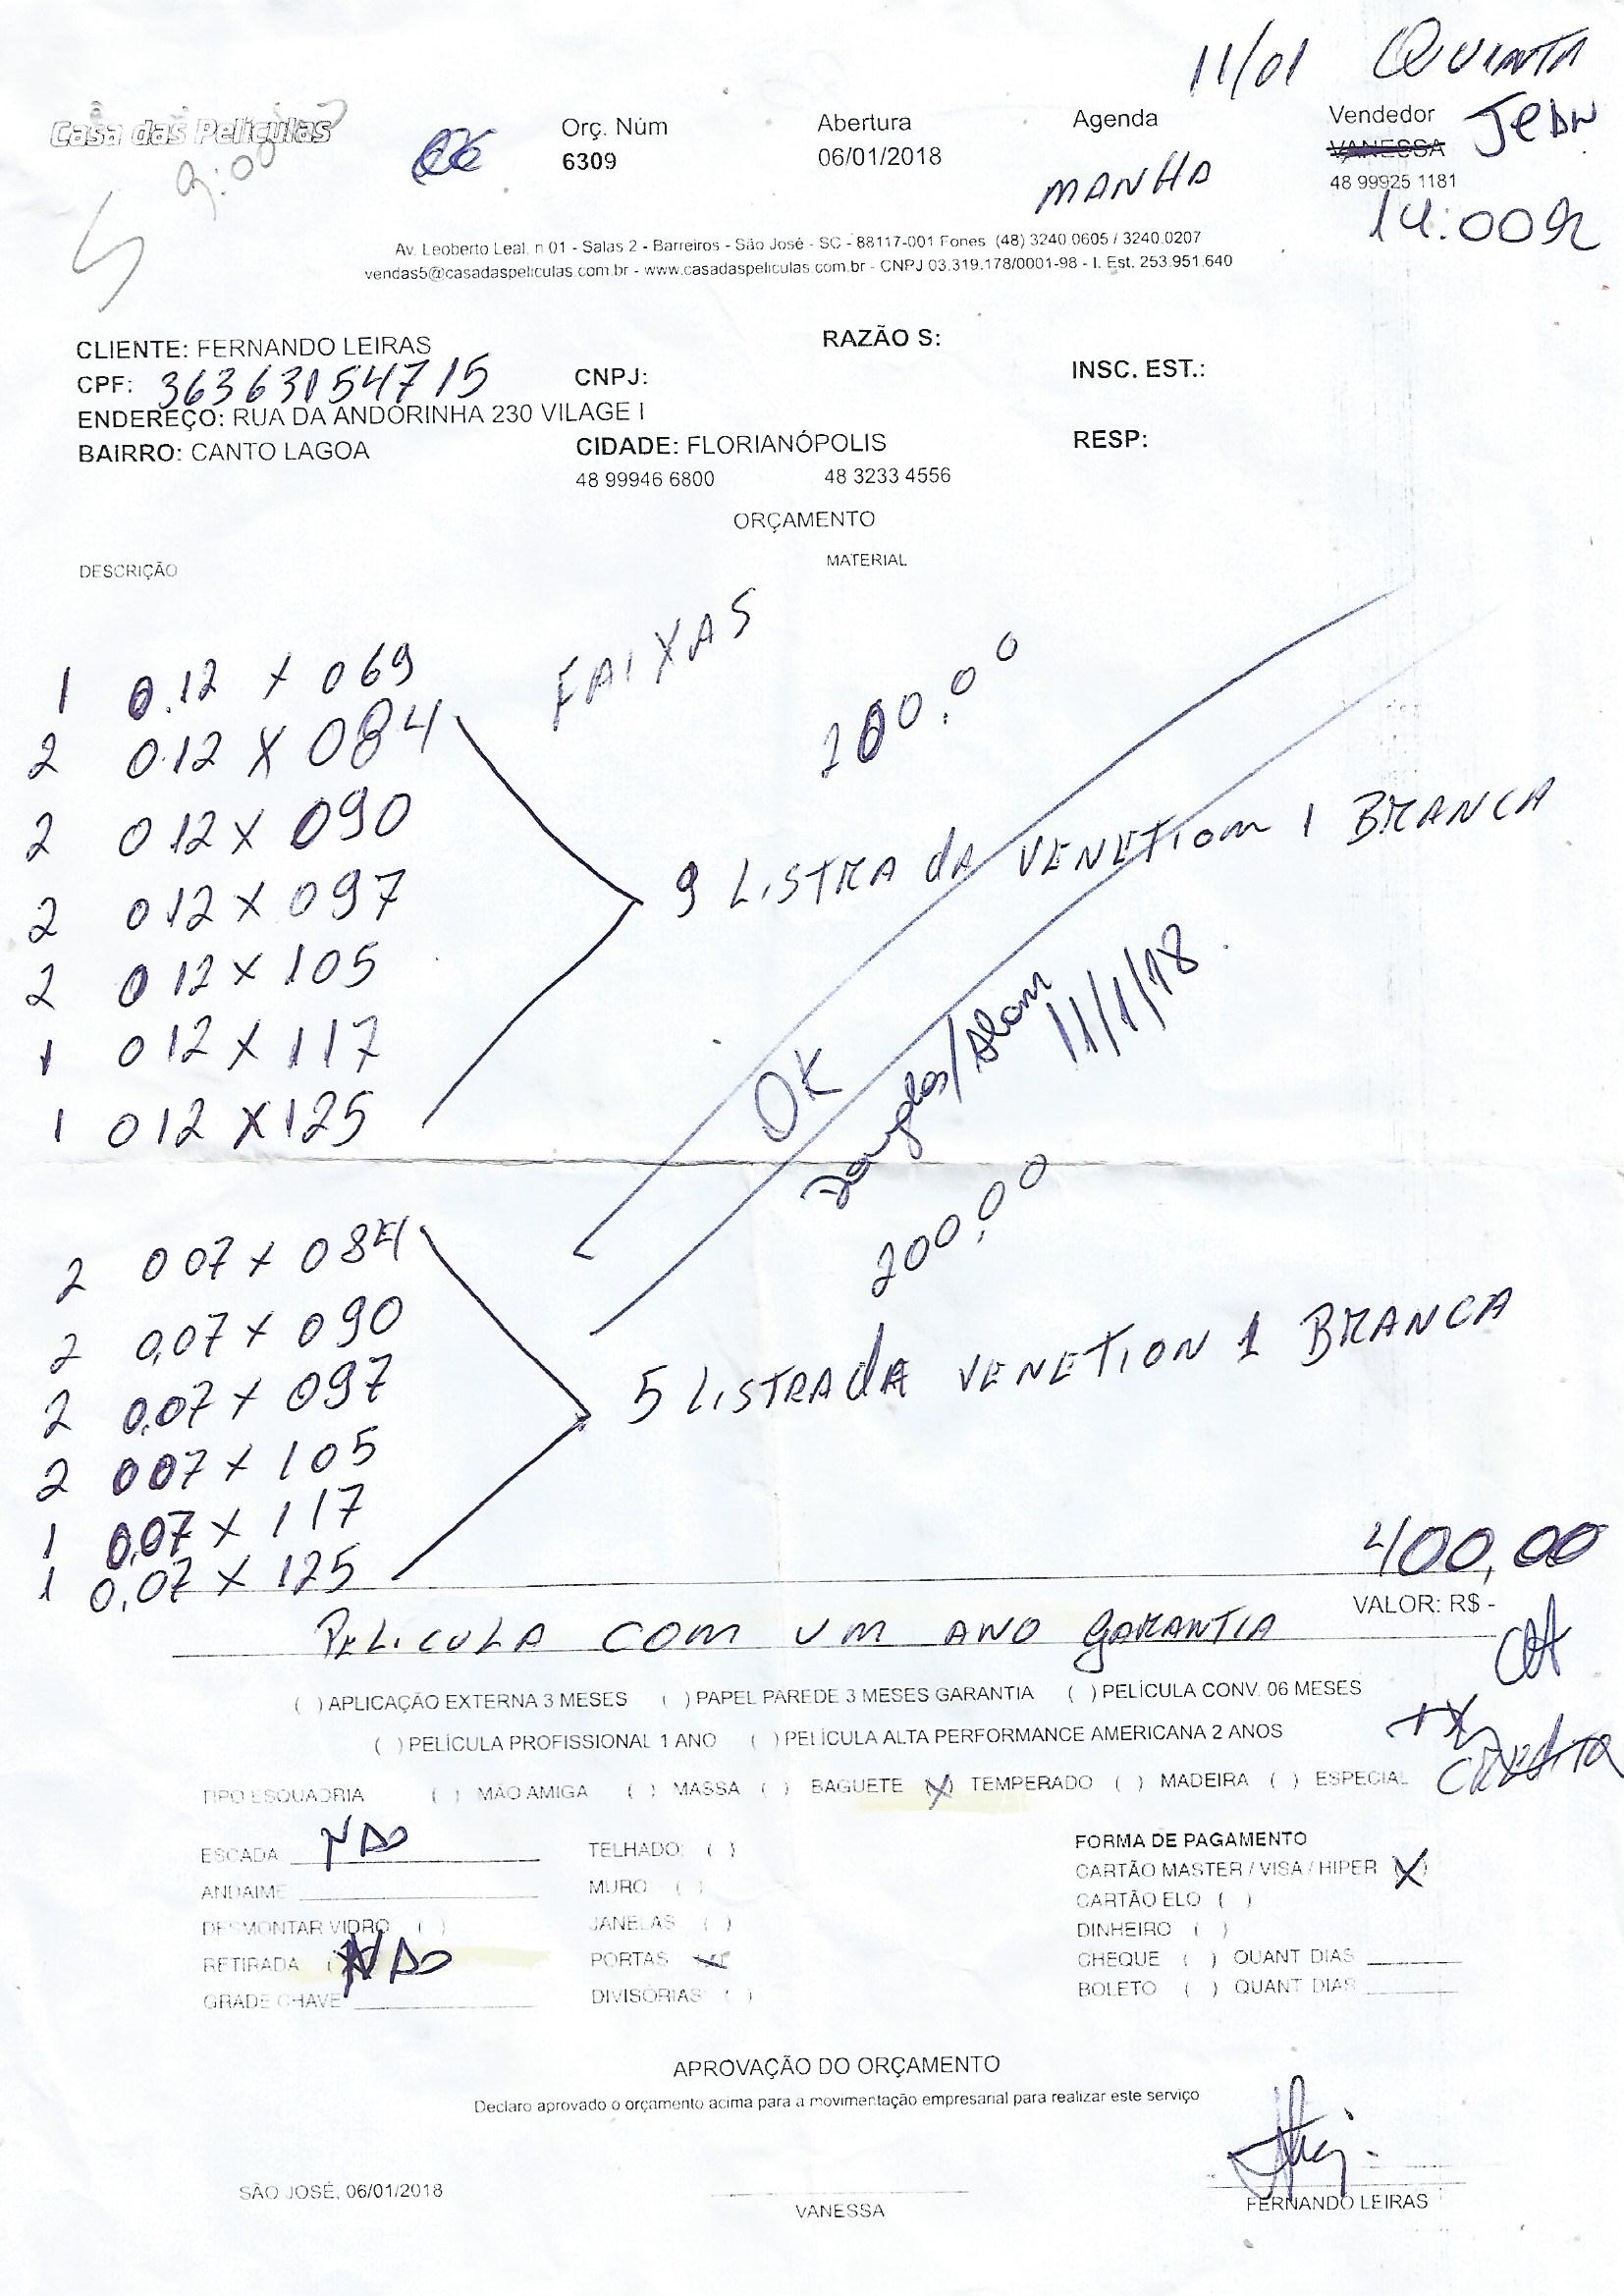 11/01 QUINTA
Casa das Películas
9:00
Orç. Núm
6309
Abertura
06/01/2018
Agenda
MANHA
Vendedor
VANESSA JEAN
48 99925 1181
14:00
Av. Leoberto Leal, n 01 - Salas 2 - Barreiros - São José - SC - 88117-001 Fones (48) 3240 0605 / 3240.0207
vendas5@casadaspeliculas.com.br - www.casadaspeliculas.com.br - CNPJ 03.319.178/0001-98 - I. Est. 253.951.640
CLIENTE: FERNANDO LEIRAS RAZÃO S:
CPF: 36363154715 CNPJ: INSC. EST.:
ENDEREÇO: RUA DA ANDORINHA 230 VILAGE I
BAIRRO: CANTO LAGOA CIDADE: FLORIANÓPOLIS RESP:
48 99946 6800 48 3233 4556
ORÇAMENTO
DESCRIÇÃO MATERIAL
FAIXAS
200.00
1 0.12 x 069
2 0.12 X 084
2 012 x 090
2 012 x 097
2 012 x 105
1 012 x 117
1 012 x 125
9 LISTRADA VENETION 1 BRANCA
OK
Douglas/Alan
11/1/18.
200.00
2 007 x 084
2 0,07 x 090
2 0.07 x 097
2 007 x 105
1 0.07 x 117
1 0,07 x 125
5 LISTRADA VENETION 1 BRANCA
400,00
VALOR: R$ -
PELICULA COM UM ANO GARANTIA
( ) APLICAÇÃO EXTERNA 3 MESES ( ) PAPEL PAREDE 3 MESES GARANTIA ( ) PELÍCULA CONV. 06 MESES
( ) PELÍCULA PROFISSIONAL 1 ANO ( ) PELÍCULA ALTA PERFORMANCE AMERICANA 2 ANOS
TIPO ESQUADRIA ( ) MÃO AMIGA ( ) MASSA ( ) BAGUETE (X) TEMPERADO ( ) MADEIRA ( ) ESPECIAL
ESCADA NAO
ANDAIME
DESMONTAR VIDRO ( )
RETIRADA ( NAO
GRADE CHAVE
TELHADO: ( )
MURO ( )
JANELAS ( )
PORTAS
DIVISÓRIAS ( )
FORMA DE PAGAMENTO
CARTÃO MASTER / VISA / HIPER (X)
CARTÃO ELO ( )
DINHEIRO ( )
CHEQUE ( ) QUANT DIAS
BOLETO ( ) QUANT DIAS
APROVAÇÃO DO ORÇAMENTO
Declaro aprovado o orçamento acima para a movimentação empresarial para realizar este serviço
SÃO JOSÉ, 06/01/2018
VANESSA
FERNANDO LEIRAS